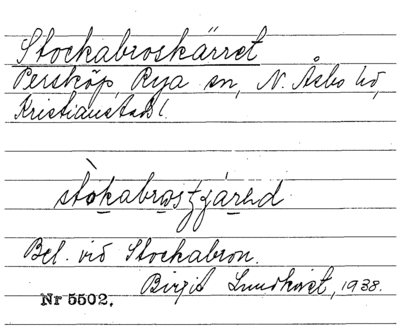 Stockabroskärret
Persköp, Rya sn, N. Åsbo hd,
Kristianstads l.
Bel. vid Stockabron.
Birgit Lundkvist, 1938.
Nr 5502.